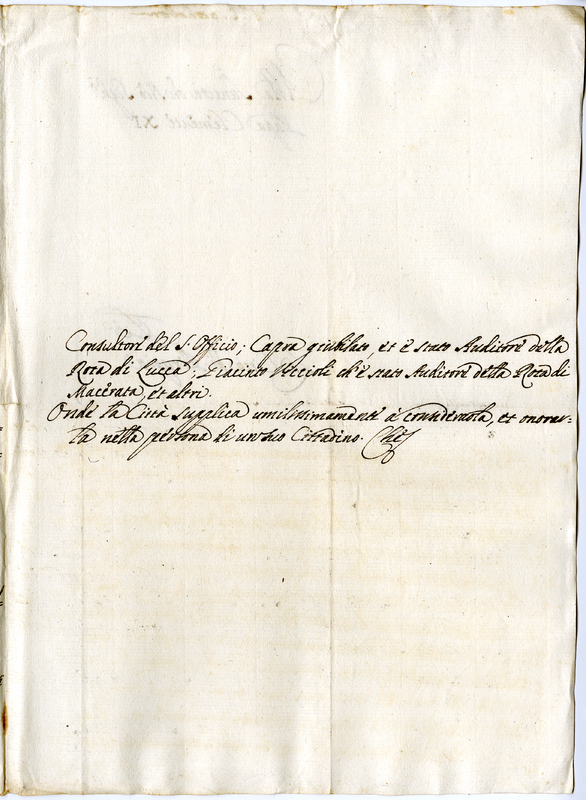 Consultore del S. Officio; Capra giubilato, et è stato Auditore della
Rota di Lucca; Giacinto Uccioli ch'è stato Auditore della Rota di
Macerata, et altri.
Onde la Città supplica umilissimamente à considerarla, et onorar=
la nella persona di un suo Cittadino. Che